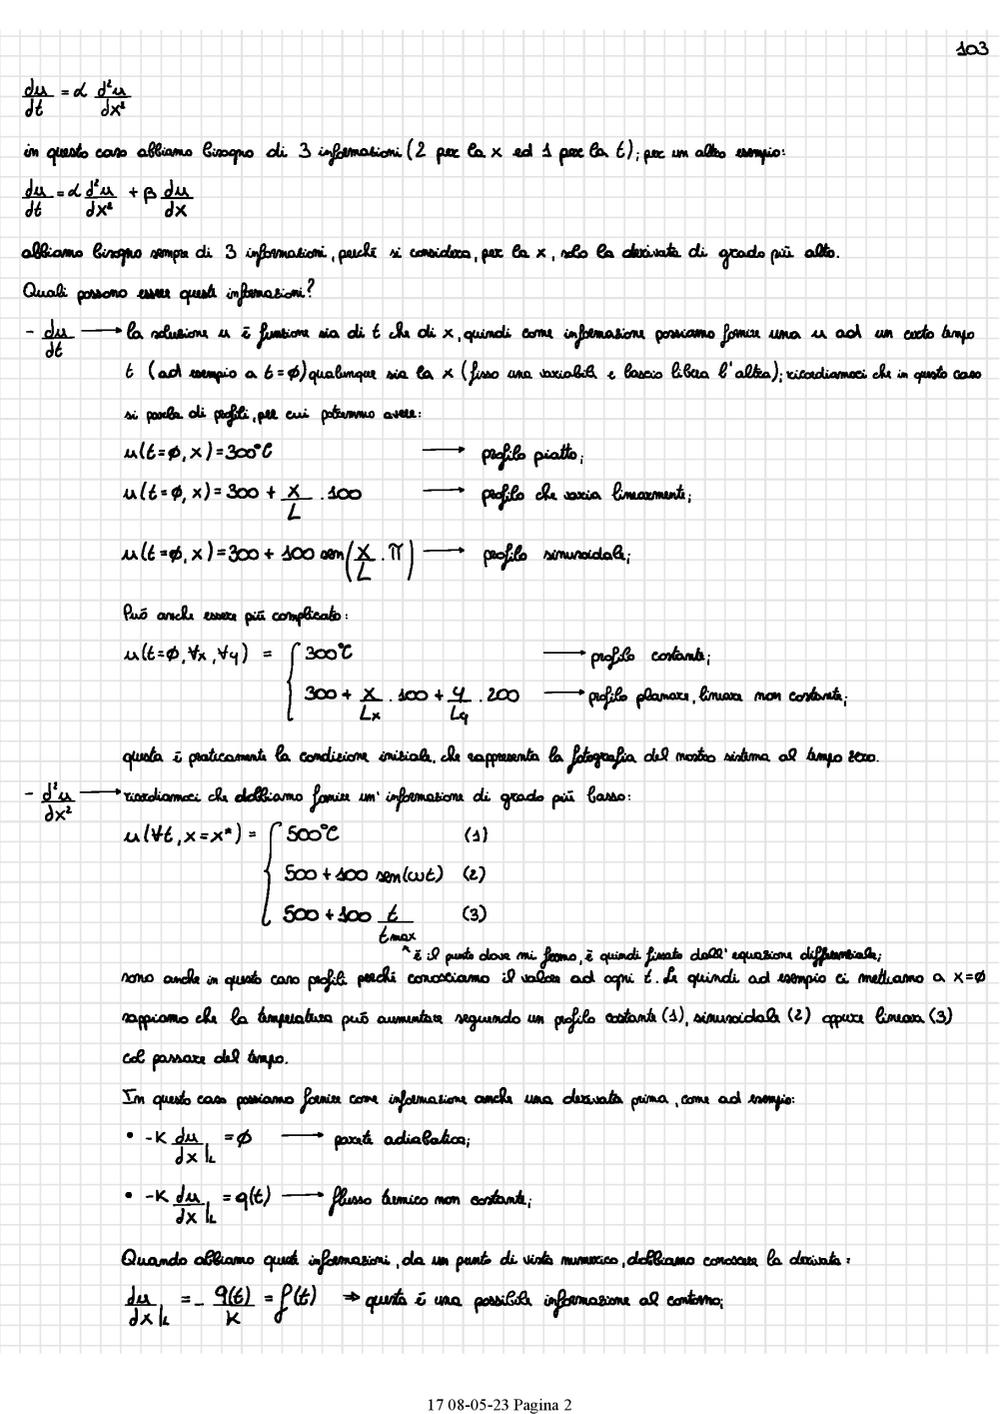 103
du/dt = α d²u/dx²
in questo caso abbiamo bisogno di 3 informazioni (2 per la x ed 1 per la t); per un altro esempio:
du/dt = α d²u/dx² + β du/dx
abbiamo bisogno sempre di 3 informazioni, perché si considera, per la x, solo la derivata di grado più alto.
Quali possono essere queste informazioni?
- du/dt → la soluzione u è funzione sia di t che di x, quindi come informazione possiamo fornire una u ad un certo tempo
t (ad esempio a t=∅) qualunque sia la x (fisso una variabile e lascio libera l'altra); ricordiamoci che in questo caso
si parla di profili, per cui potremmo avere:
u(t=∅, x) = 300°C → profilo piatto;
u(t=∅, x) = 300 + x/L · 100 → profilo che varia linearmente;
u(t=∅, x) = 300 + 100 sen(x/L · π) → profilo sinusoidale;
Può anche essere più complicato:
u(t=∅, ∀x, ∀y) = { 300°C → profilo costante;
300 + x/Lx · 100 + y/Ly · 200 → profilo planare, lineare non costante;
questa è praticamente la condizione iniziale, che rappresenta la fotografia del nostro sistema al tempo zero.
- d²u/dx² → ricordiamoci che dobbiamo fornire un' informazione di grado più basso:
u(∀t, x=x*) = { 500°C (1)
500 + 100 sen(ωt) (2)
500 + 100 t/tmax (3)
^ è il punto dove mi fermo, è quindi fissato dall'equazione differenziale;
sono anche in questo caso profili perché conosciamo il valore ad ogni t. Se quindi ad esempio ci mettiamo a x=∅
sappiamo che la temperatura può aumentare seguendo un profilo costante (1), sinusoidale (2) oppure lineare (3)
col passare del tempo.
In questo caso possiamo fornire come informazione anche una derivata prima, come ad esempio:
• -K du/dx|L = ∅ → parete adiabatica;
• -K du/dx|L = q(t) → flusso termico non costante;
Quando abbiamo queste informazioni, da un punto di vista numerico, dobbiamo conoscere la derivata:
du/dx|L = - q(t)/K = f(t) ⇒ questa è una possibile informazione al contorno;
17 08-05-23 Pagina 2